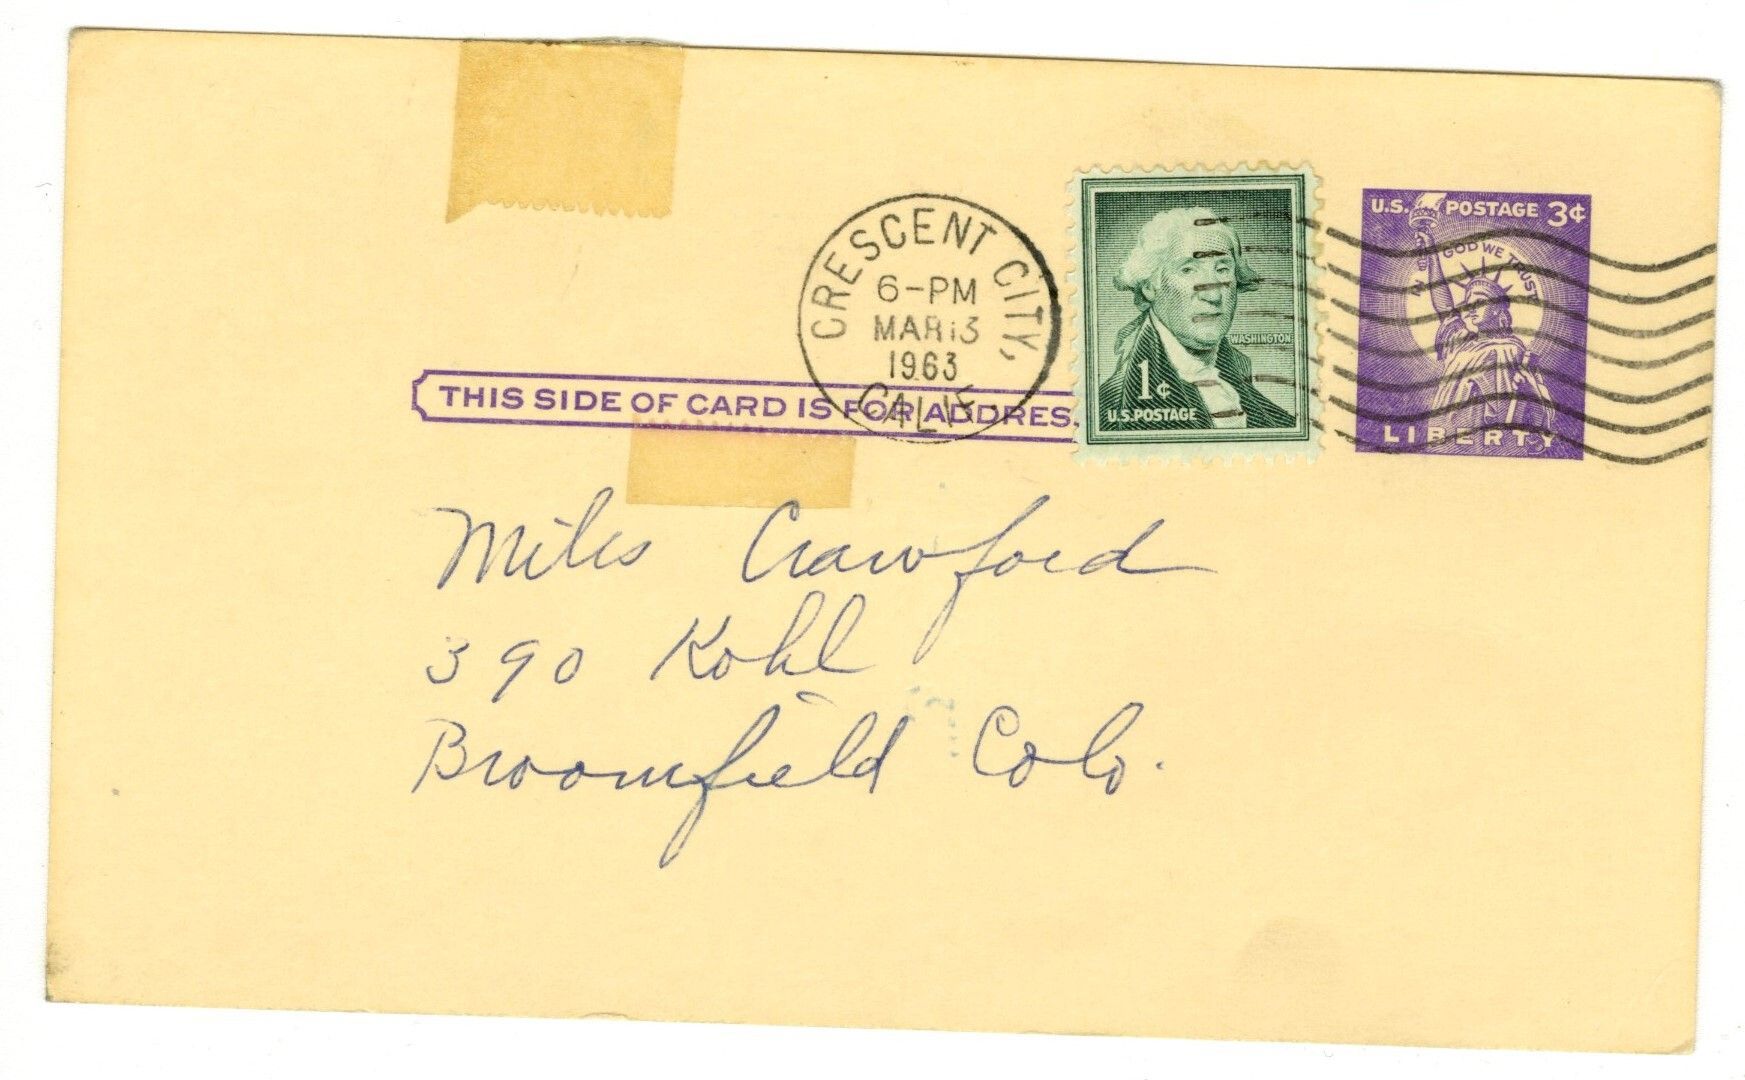 CRESCENT CITY,
6-PM
MAR 13
1963
CALIF.
WASHINGTON
1¢
U.S. POSTAGE
U.S. POSTAGE 3¢
IN GOD WE TRUST
LIBERTY
THIS SIDE OF CARD IS FOR ADDRES
Miles Crawford
390 Kohl
Broomfield Colo.